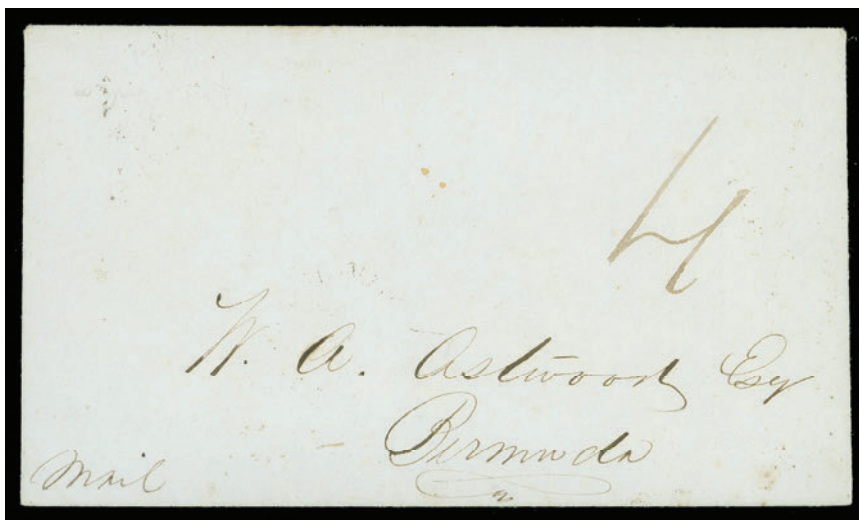 4
W. A. Astwood Esq
Bermuda
Mail